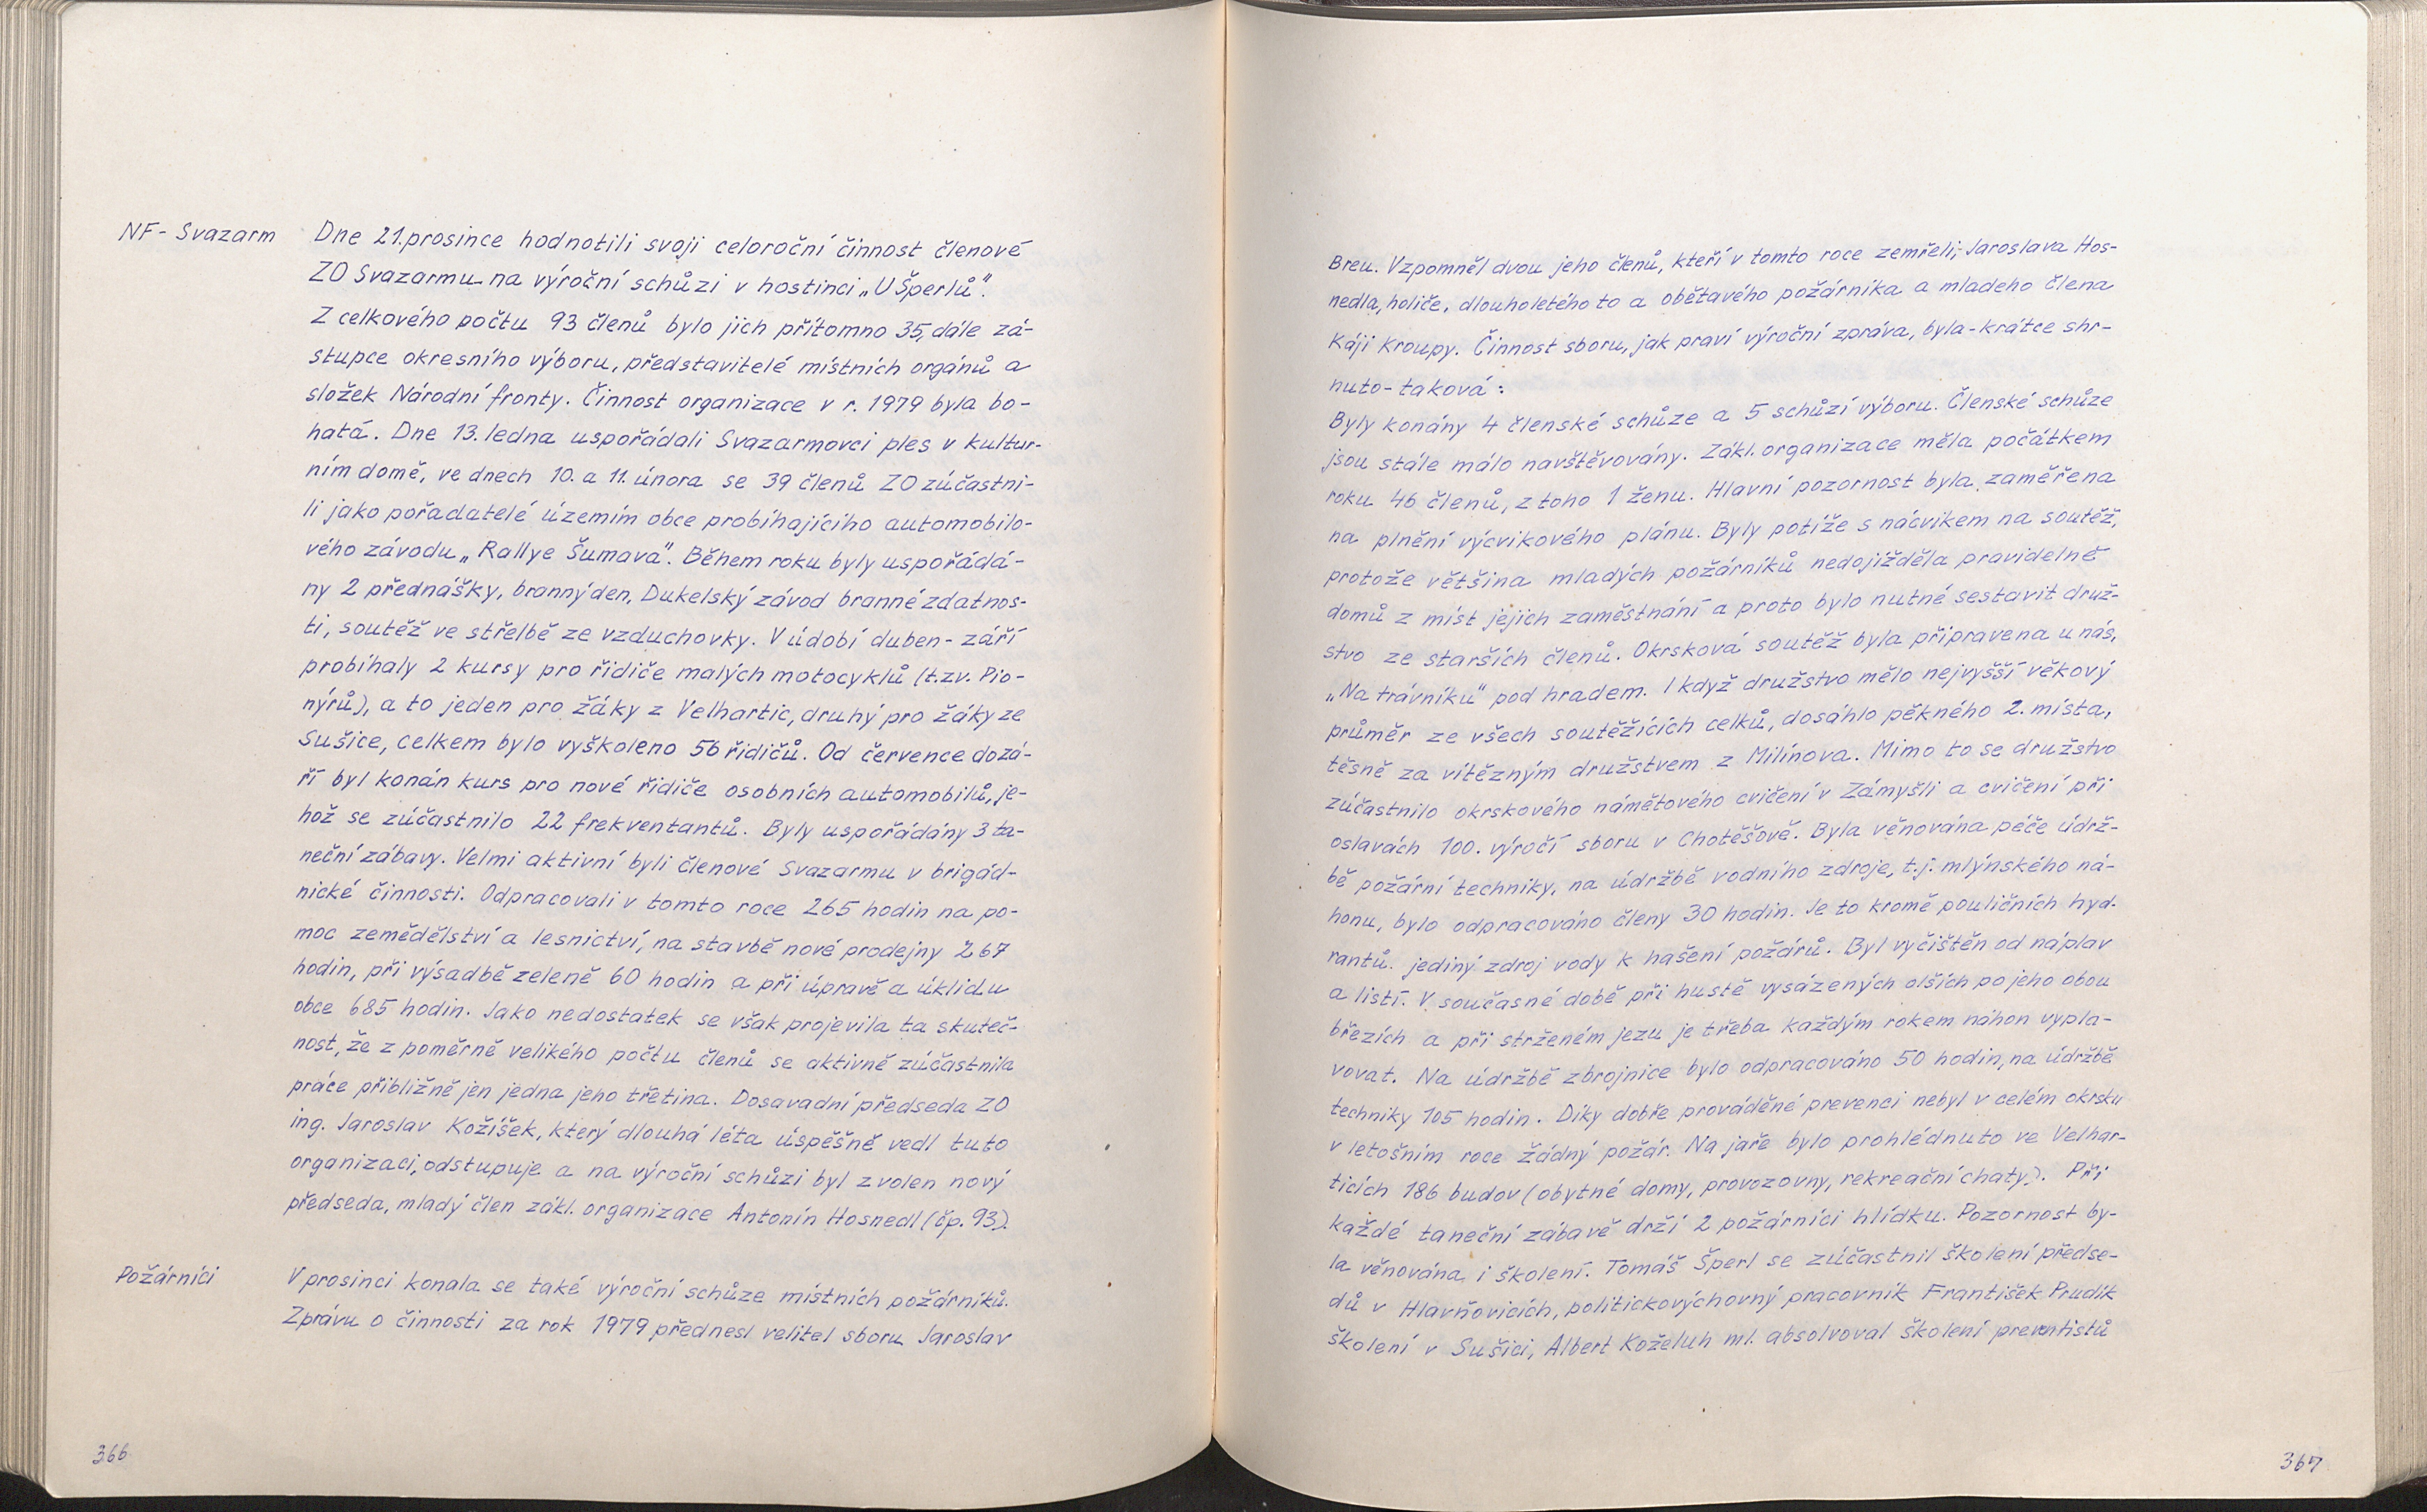 NF- Svazarm
Dne 21.prosince hodnotili svoji celoroční činnost členové
ZO Svazarmu na výroční schůzi v hostinci „U Šperlů".
Z celkového počtu 93 členů bylo jich přítomno 35, dále zá-
stupce okresního výboru, představitelé místních orgánů a
složek Národní fronty. Činnost organizace v r. 1979 byla bo-
hatá. Dne 13. ledna uspořádali Svazarmovci ples v kultur-
ním domě, ve dnech 10. a 11. února se 39 členů ZO zúčastni-
li jako pořadatelé územím obce probíhajícího automobilo-
vého závodu „Rallye Šumava". Během roku byly uspořádá-
ny 2 přednášky, branný den, Dukelský závod branné zdatnos-
ti, soutěž ve střelbě ze vzduchovky. V údobí duben - září
probíhaly 2 kursy pro řidiče malých motocyklů (t.zv. Pio-
nýrů), a to jeden pro žáky z Velhartic, druhý pro žáky ze
Sušice, celkem bylo vyškoleno 56 řidičů. Od července do zá-
ří byl konán kurs pro nové řidiče osobních automobilů, je-
hož se zúčastnilo 22 frekventantů. Byly uspořádány 3 ta-
neční zábavy. Velmi aktivní byli členové Svazarmu v brigád-
nické činnosti. Odpracovali v tomto roce 265 hodin na po-
moc zemědělství a lesnictví, na stavbě nové prodejny 267
hodin, při výsadbě zeleně 60 hodin a při úpravě a úklidu
obce 685 hodin. Jako nedostatek se však projevila ta skuteč-
nost, že z poměrně velikého počtu členů se aktivně zúčastnila
práce přibližně jen jedna jeho třetina. Dosavadní předseda ZO
ing. Jaroslav Kožíšek, který dlouhá léta úspěšně vedl tuto
organizaci, odstupuje a na výroční schůzi byl zvolen nový
předseda, mladý člen zákl. organizace Antonín Hosnedl (čp. 93).
Požárníci
V prosinci konala se také výroční schůze místních požárníků.
Zprávu o činnosti za rok 1979 přednesl velitel sboru Jaroslav
366
Breu. Vzpomněl dvou jeho členů, kteří v tomto roce zemřeli; Jaroslava Hos-
nedla, holiče, dlouholetého to a obětavého požárníka a mladeho člena
Káji Kroupy. Činnost sboru, jak praví výroční zpráva, byla - krátce shr-
nuto - taková:
Byly konány 4 členské schůze a 5 schůzí výboru. Členské schůze
jsou stále málo navštěvovány. Zákl. organizace měla počátkem
roku 46 členů, z toho 1 ženu. Hlavní pozornost byla zaměřena
na plnění výcvikového plánu. Byly potíže s nácvikem na soutěž,
protože většina mladých požárníků nedojížděla pravidelně
domů z míst jejich zaměstnání a proto bylo nutné sestavit druž-
stvo ze starších členů. Okrsková soutěž byla připravena u nás,
„Na trávníku" pod hradem. I když družstvo mělo nejvyšší věkový
průměr ze všech soutěžících celků, dosáhlo pěkného 2. místa,
těsně za vítězným družstvem z Milínova. Mimo to se družstvo
zúčastnilo okrskového námětového cvičení v Zámyšli a cvičení při
oslavách 100. výročí sboru v Chotěšově. Byla věnována péče údrž-
bě požární techniky, na údržbě vodního zdroje, t.j. mlýnského ná-
honu, bylo odpracováno členy 30 hodin. Je to kromě pouličních hyd-
rantů. jediný zdroj vody k hašení požárů. Byl vyčištěn od náplav
a listí. V současné době při hustě vysázených olších po jeho obou
březích a při strženém jezu je třeba každým rokem náhon vypla-
vovat. Na údržbě zbrojnice bylo odpracováno 50 hodin, na údržbě
techniky 105 hodin. Díky dobře prováděné prevenci nebyl v celém okrsku
v letošním roce žádný požár. Na jaře bylo prohlédnuto ve Velhar-
ticích 186 budov (obytné domy, provozovny, rekreační chaty). Při
každé taneční zábavě drží 2 požárníci hlídku. Pozornost by-
la věnována i školení. Tomáš Šperl se zúčastnil školení předse-
dů v Hlavňovicích, politickovýchovný pracovník František Prudík
školení v Sušici, Albert Koželuh ml. absolvoval školení preventistů
367